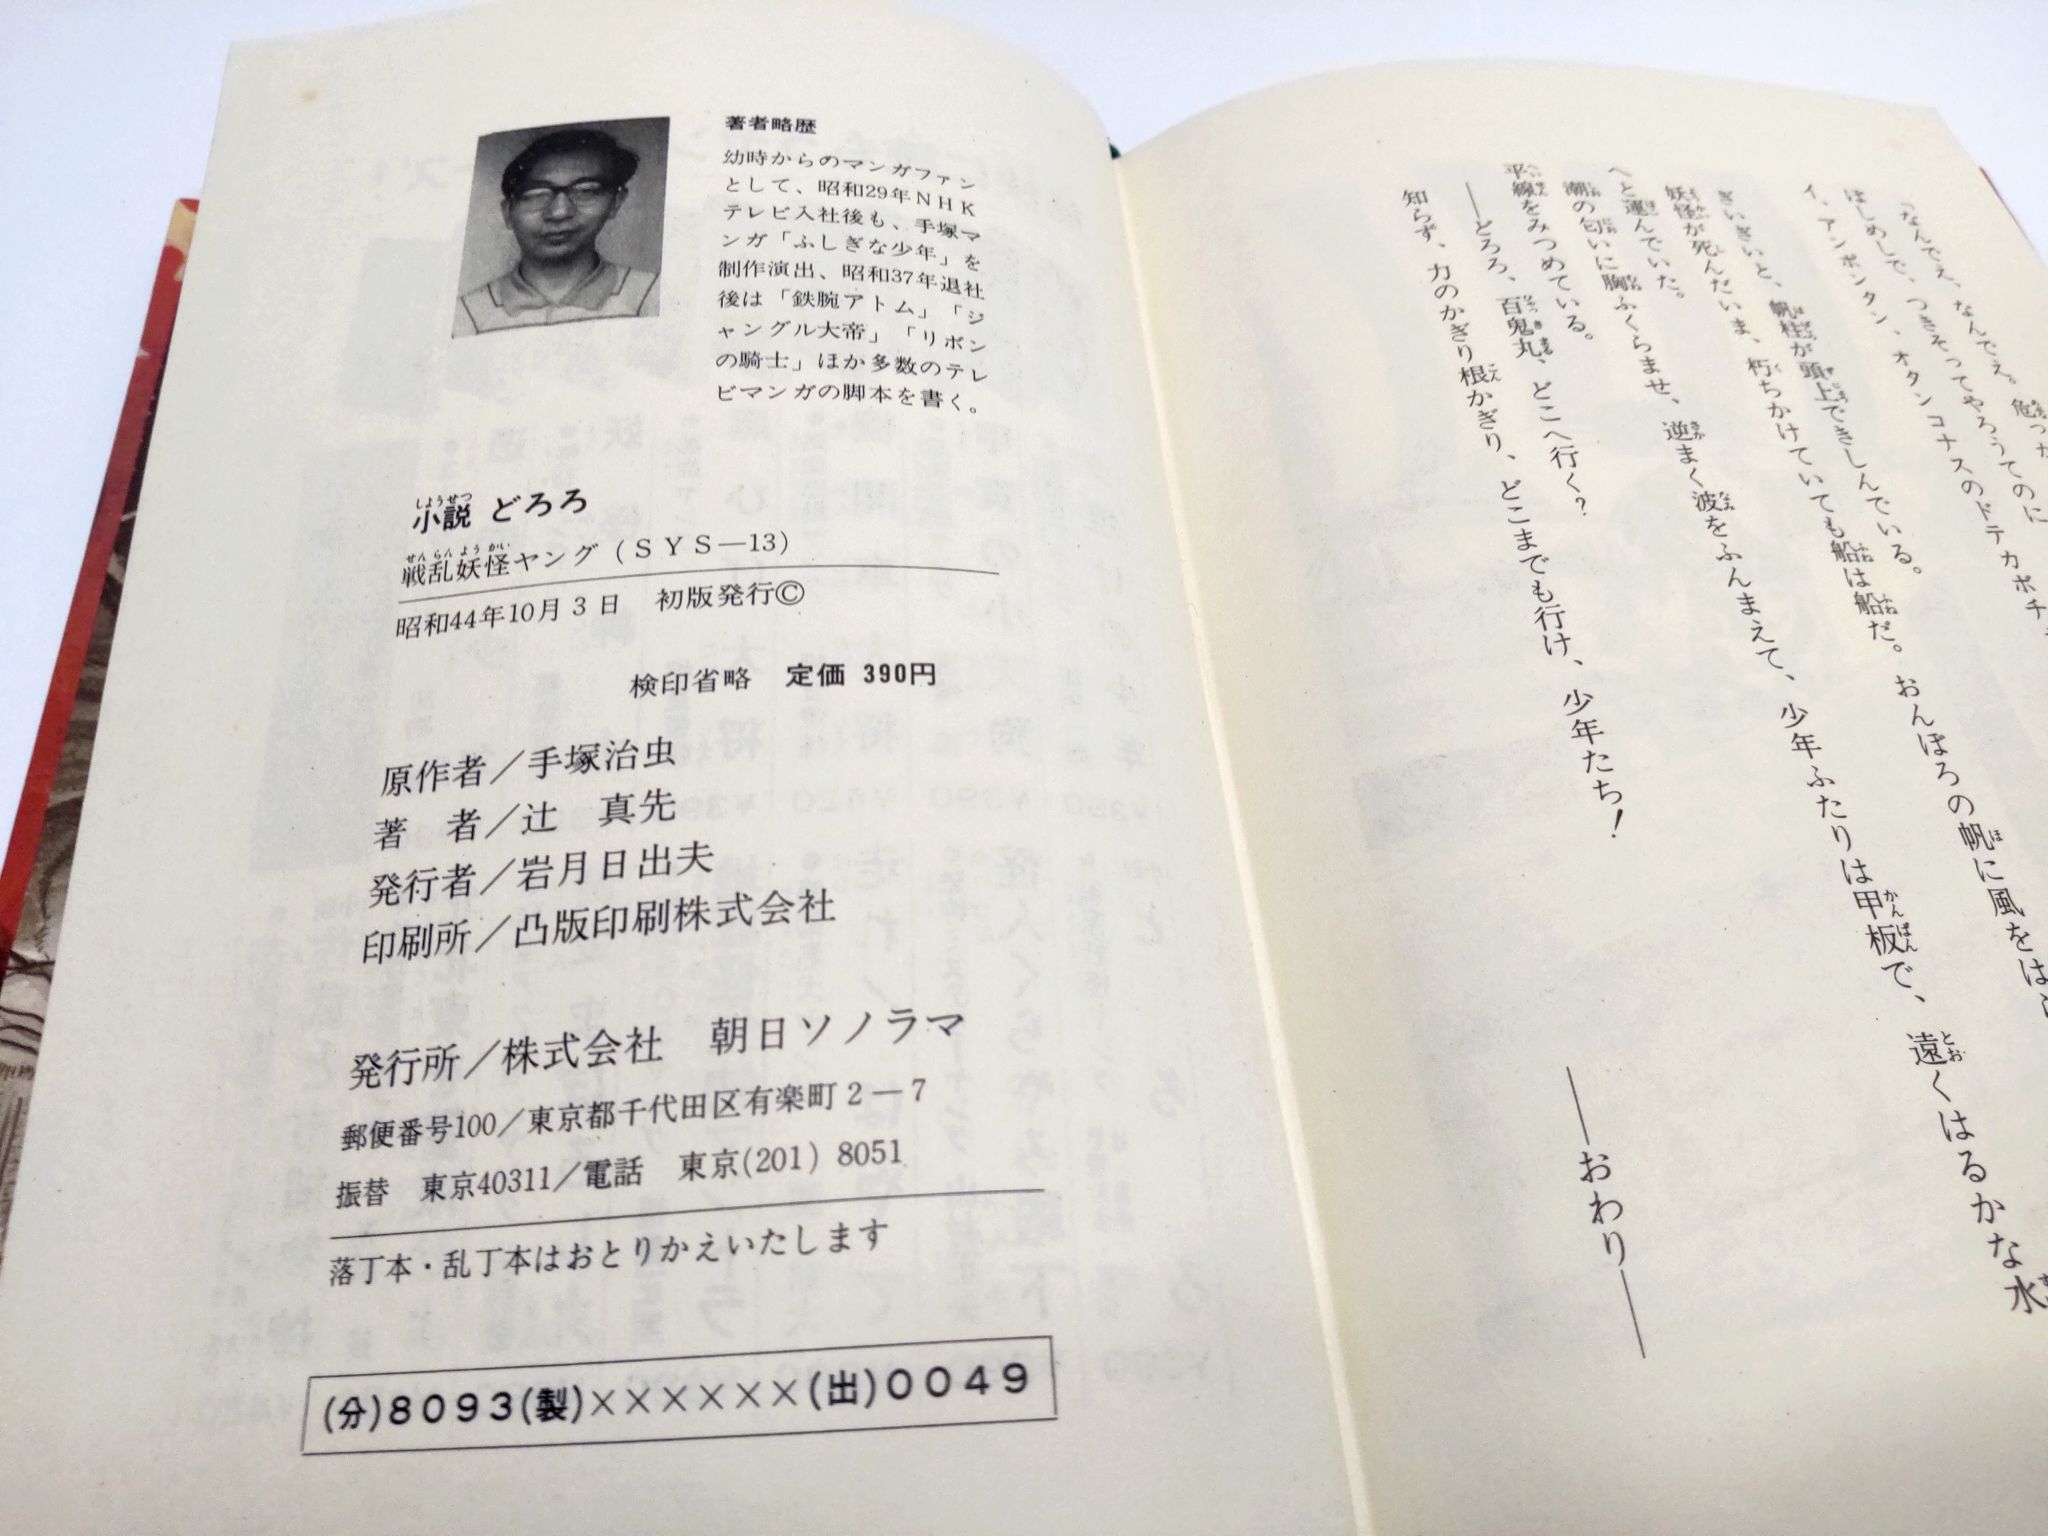 著者略歴
幼時からのマンガファン
として、昭和29年NHK
テレビ入社後も、手塚マ
ンガ「ふしぎな少年」を
制作演出、昭和37年退社
後は「鉄腕アトム」「ジ
ャングル大帝」「リボン
の騎士」ほか多数のテレ
ビマンガの脚本を書く。
小説 どろろ
戦乱妖怪ヤング(SYS—13)
昭和44年10月3日 初版発行©
検印省略 定価 390円
原作者／手塚治虫
著 者／辻 真先
発行者／岩月日出夫
印刷所／凸版印刷株式会社
発行所／株式会社 朝日ソノラマ
郵便番号100／東京都千代田区有楽町2—7
振替 東京40311／電話 東京(201)8051
落丁本・乱丁本はおとりかえいたします
(分)8093(製)××××××(出)0049
「なんでえ、なんでえ。危っか
はしめしで、つきそってやろうてのに
イ、アンポンタン、オタンコナスのドテカボチ
ぎいぎいと、帆柱が頭上できしんでいる。
妖怪が死んだいま、朽ちかけていても船は船だ。おんぼろの帆に風をは
へと運んでいた。
潮の匂いに胸ふくらませ、逆まく波をふんまえて、少年ふたりは甲板で、遠くはるかな水
平線をみつめている。
——どろろ、百鬼丸、どこへ行く?
知らず、力のかぎり根かぎり、どこまでも行け、少年たち!
——おわり——